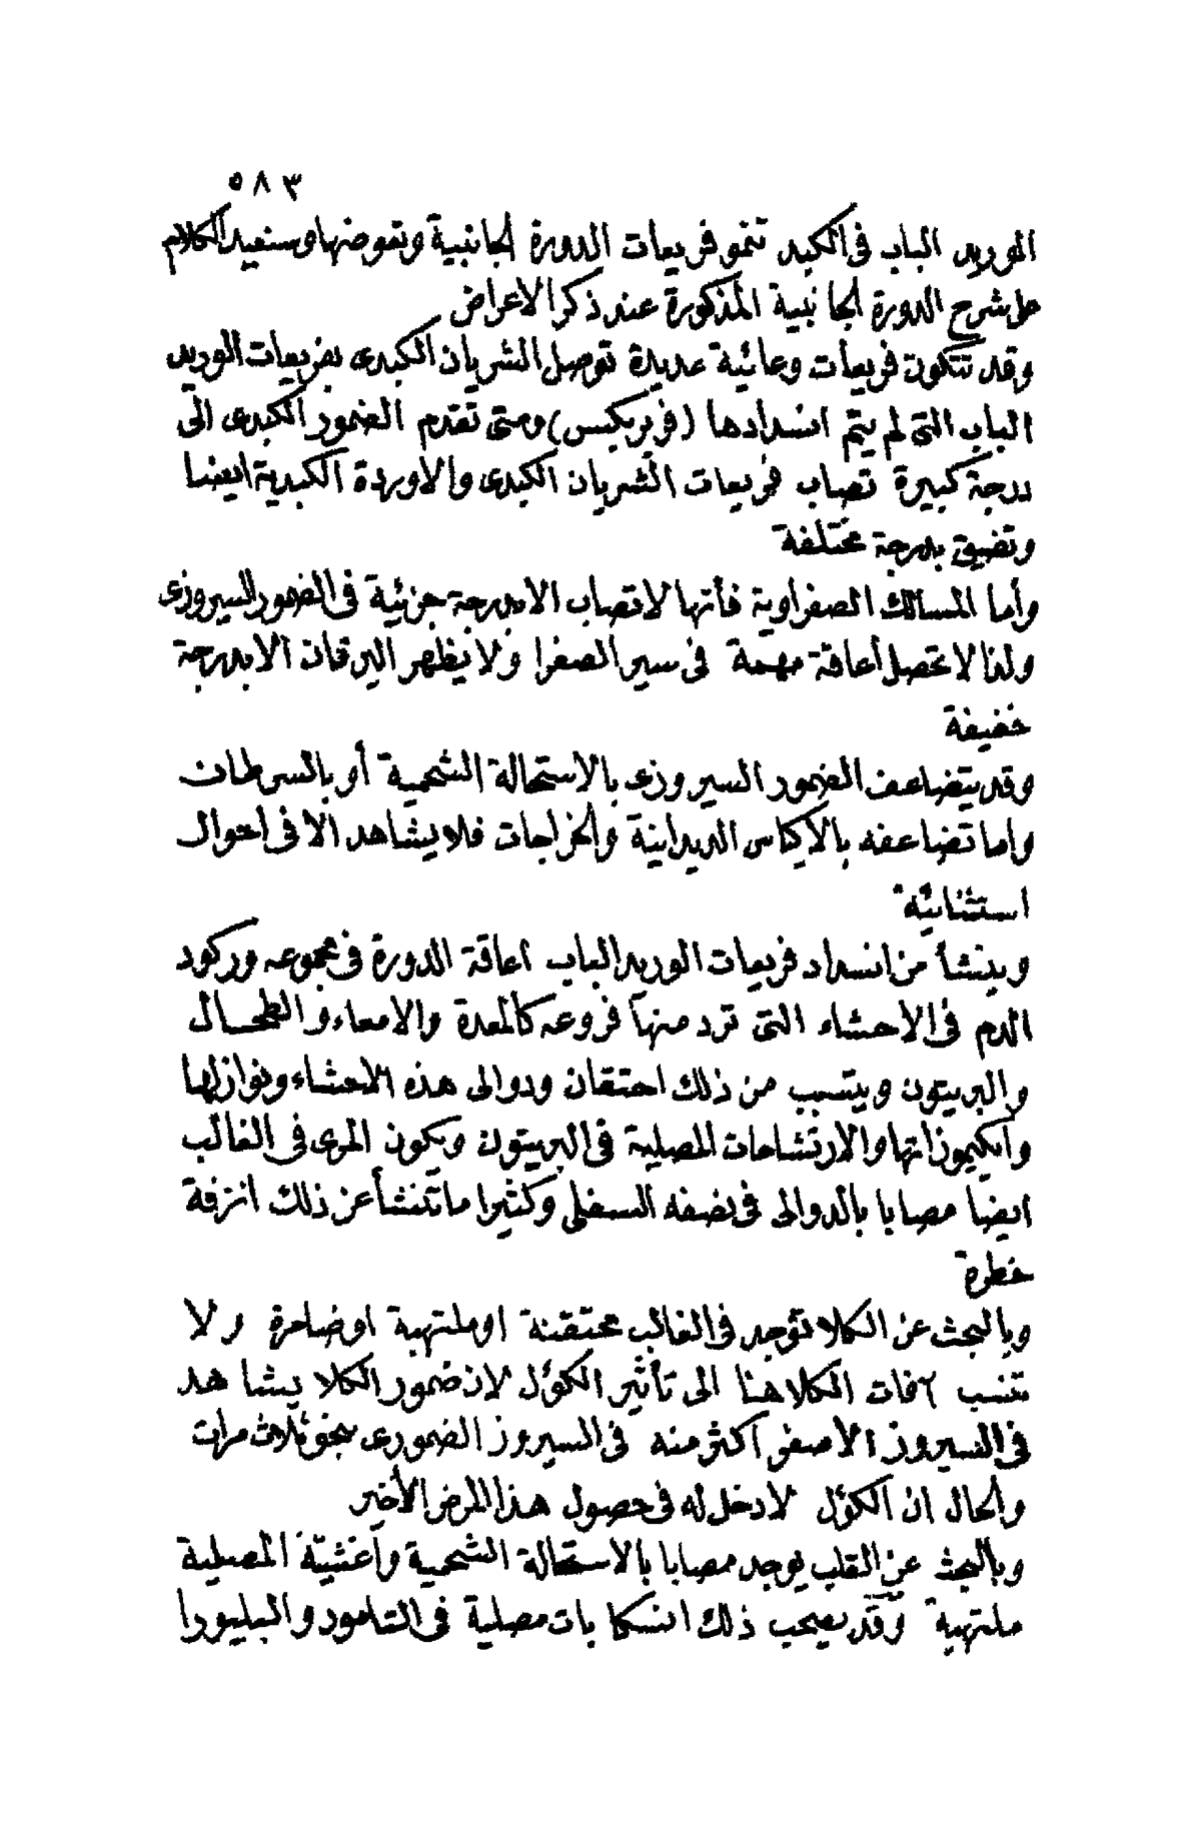 ٥٨٣
الوريد الباب فى الكبد تنمو فريعات الدورة الجانبية وتعوضها وسنعيد الكلام
على شرح الدورة الجانبية المذكورة عند ذكر الاعراض
وقد تتكون فريعات وعائية عديدة توصل الشريان الكبدى بفريعات الوريد
الباب التى لم يتم انسدادها (فريريكس) ومتى تقدم الضمور الكبدى الى
درجة كبيرة تصاب فريعات الشريان الكبدى والاوردة الكبدية ايضا
وتضيق بدرجة مختلفة
وأما المسالك الصفراوية فأنها لا تصاب الا بدرجة جزئية فى الضمور السيروزى
ولذا لا تحصل أعاقة مهمة فى سير الصفرا ولا يظهر اليرقان الا بدرجة
خفيفة
وقد يتضاعف الضمور السيروزى بالاستحالة الشحمية أو بالسرطان
واما تضاعفه بالاكياس الديدانية والخراجات فلا يشاهد الا فى احوال
استثنائية
وينشأ من انسداد فريعات الوريد الباب اعاقة الدورة فى مجموعه وركود
الدم فى الاحشاء التى ترد منها فروعه كالمعدة والامعاء والطحال
والبريتون ويتسبب من ذلك احتقان ودوالى هذه الاحشاء ونوازلها
وايكيموزاتها والارتشاحات المصلية فى البريتون ويكون المرى فى الغالب
ايضا مصابا بالدوالى فى نصفه السفلى وكثيرا ما تنشأ عن ذلك انزفة
خطرة
وبالبحث عن الكلا توجد فى الغالب محتقنة او ملتهبة او ضامرة ولا
تنسب آفات الكلا هنا الى تأثير الكؤل لان ضمور الكلا يشاهد
فى السيروز الاصفر اكثر منه فى السيروز الضمورى بنحو ثلاث مرات
والحال ان الكؤل لا دخل له فى حصول هذا المرض الأخير
وبالبحث عن القلب يوجد مصابا بالاستحالة الشحمية واغشيته المصلية
ملتهبة وقد يصحب ذلك انسكابات مصلية فى التامور والبليورا